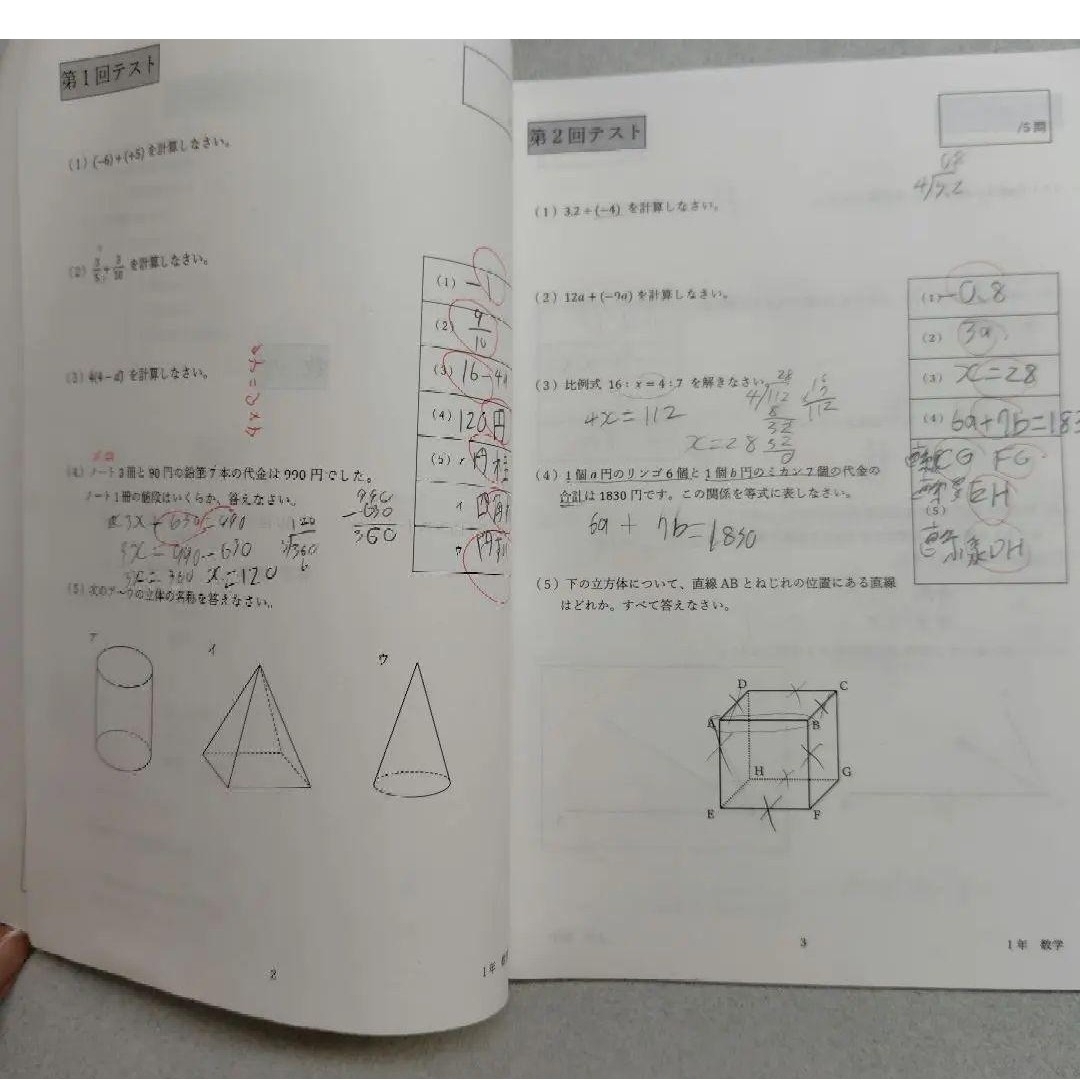 第1回テスト
(1) (-6)+(+5)を計算しなさい。
(2) 3/5+3/10 を計算しなさい。
(3) 4(4-a)を計算しなさい。
(4) ノート3冊と90円の鉛筆7本の代金は990円でした。
ノート1冊の値段はいくらか、答えなさい。
3x+630=990
3x=990-630
3x=360 x=120
990
-630
360
(5) 次のア〜ウの立体の名称を答えなさい。
ア
イ
ウ
(1) -1
(2) 9/10
(3) 16-4a
(4) 120円
(5) ア 円柱
イ 四角
ウ 円
2
1年 数学
第2回テスト
/5問
(1) 3.2÷(-4) を計算しなさい。
(2) 12a+(-9a) を計算しなさい。
(3) 比例式 16:x=4:7 を解きなさい。
4x=112
x=28
(4) 1個a円のリンゴ6個と1個b円のミカン7個の代金の
合計は1830円です。この関係を等式に表しなさい。
6a + 7b=1830
(5) 下の立方体について、直線ABとねじれの位置にある直線
はどれか。すべて答えなさい。
(1) -0.8
(2) 3a
(3) x=28
(4) 6a+7b=183
(5)
直線CG FG
直線EH
直線DH
D
C
A
B
H
G
E
F
3
1年 数学